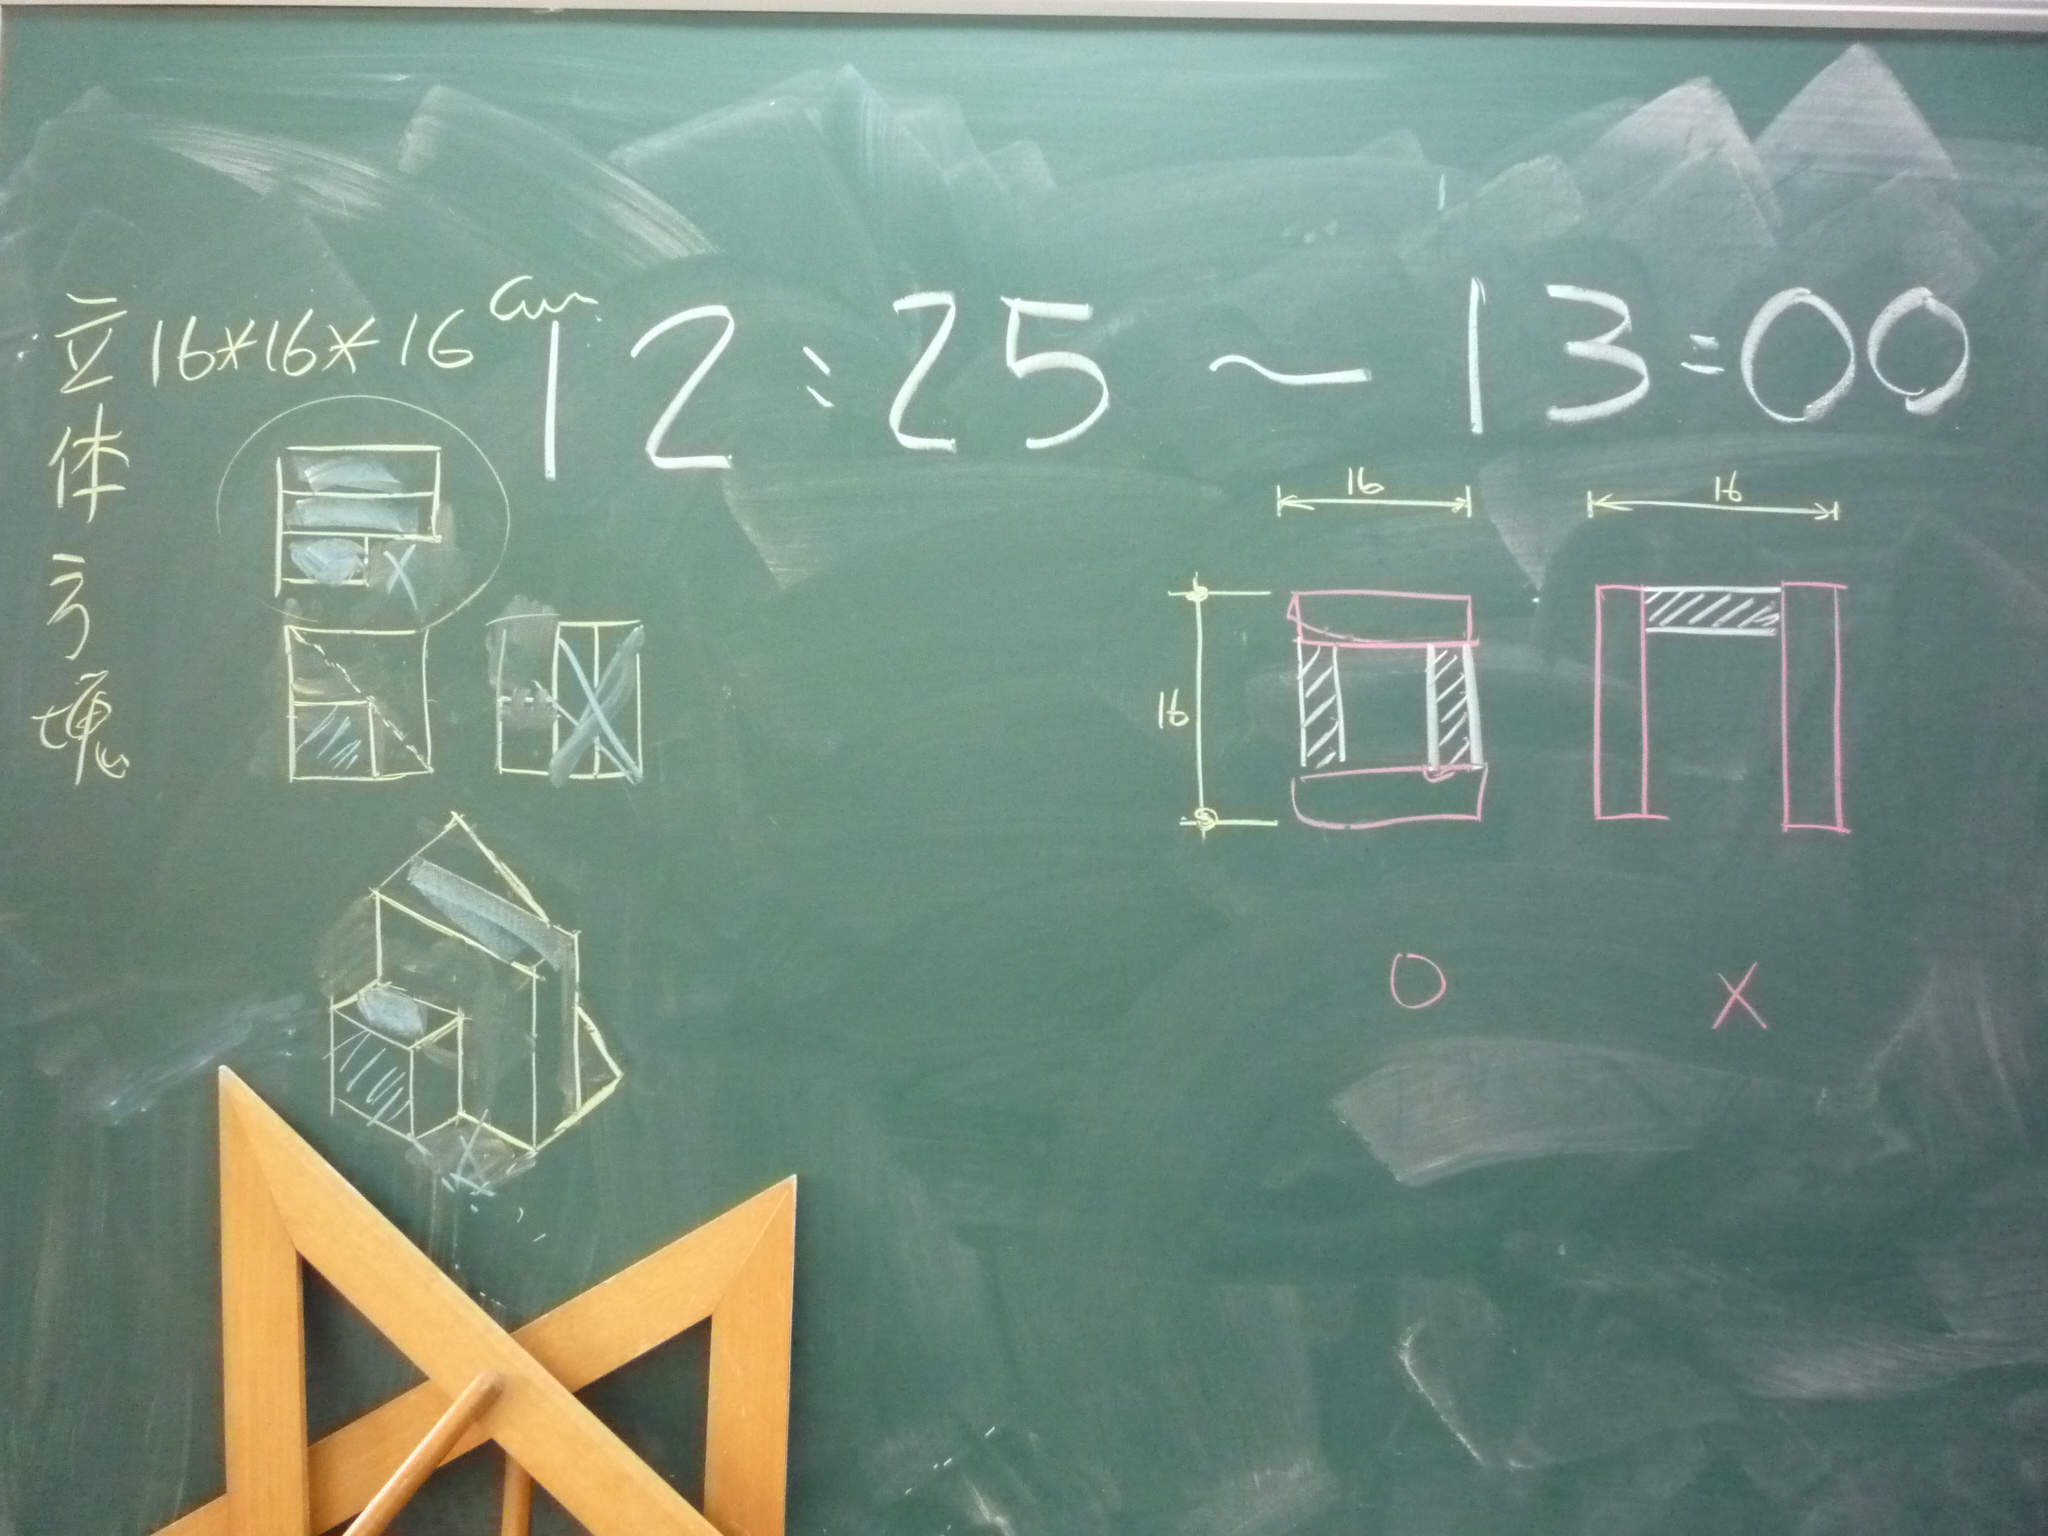 立体方塊
16*16*16 cm
12:25 ~ 13:00
16
16
16
X
O X